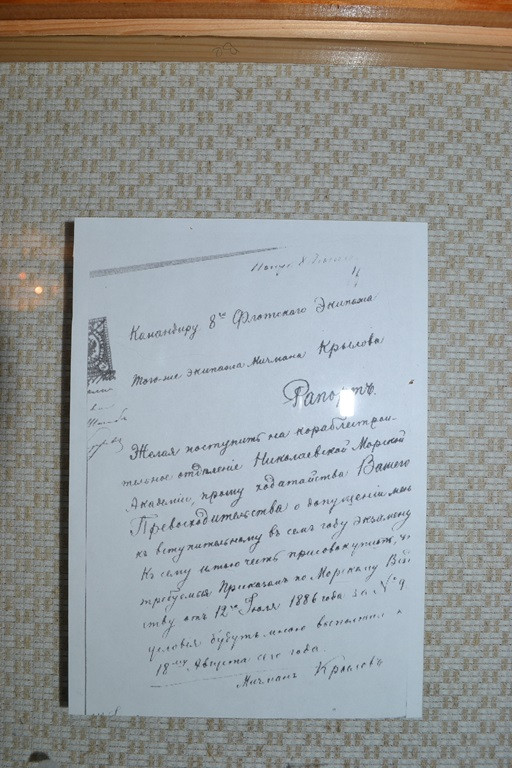 Командиру 8го Флотского Экипажа
того-же экипажа Мичмана Крылова
Рапортъ.
Желая поступить на кораблестрои-
тельное отдѣленіе Николаевской Морской
Академіи, прошу ходатайства Вашего
Превосходительства о допущеніи меня
къ вступительному въ семъ году экзамену
Къ сему имѣю честь присовокупить, что
требуемыя Приказомъ по Морскому Вѣдом
ству отъ 12го Іюля 1886 года за №
условія будутъ мною выполнены
18го Августа сего года.
Мичманъ Крыловъ